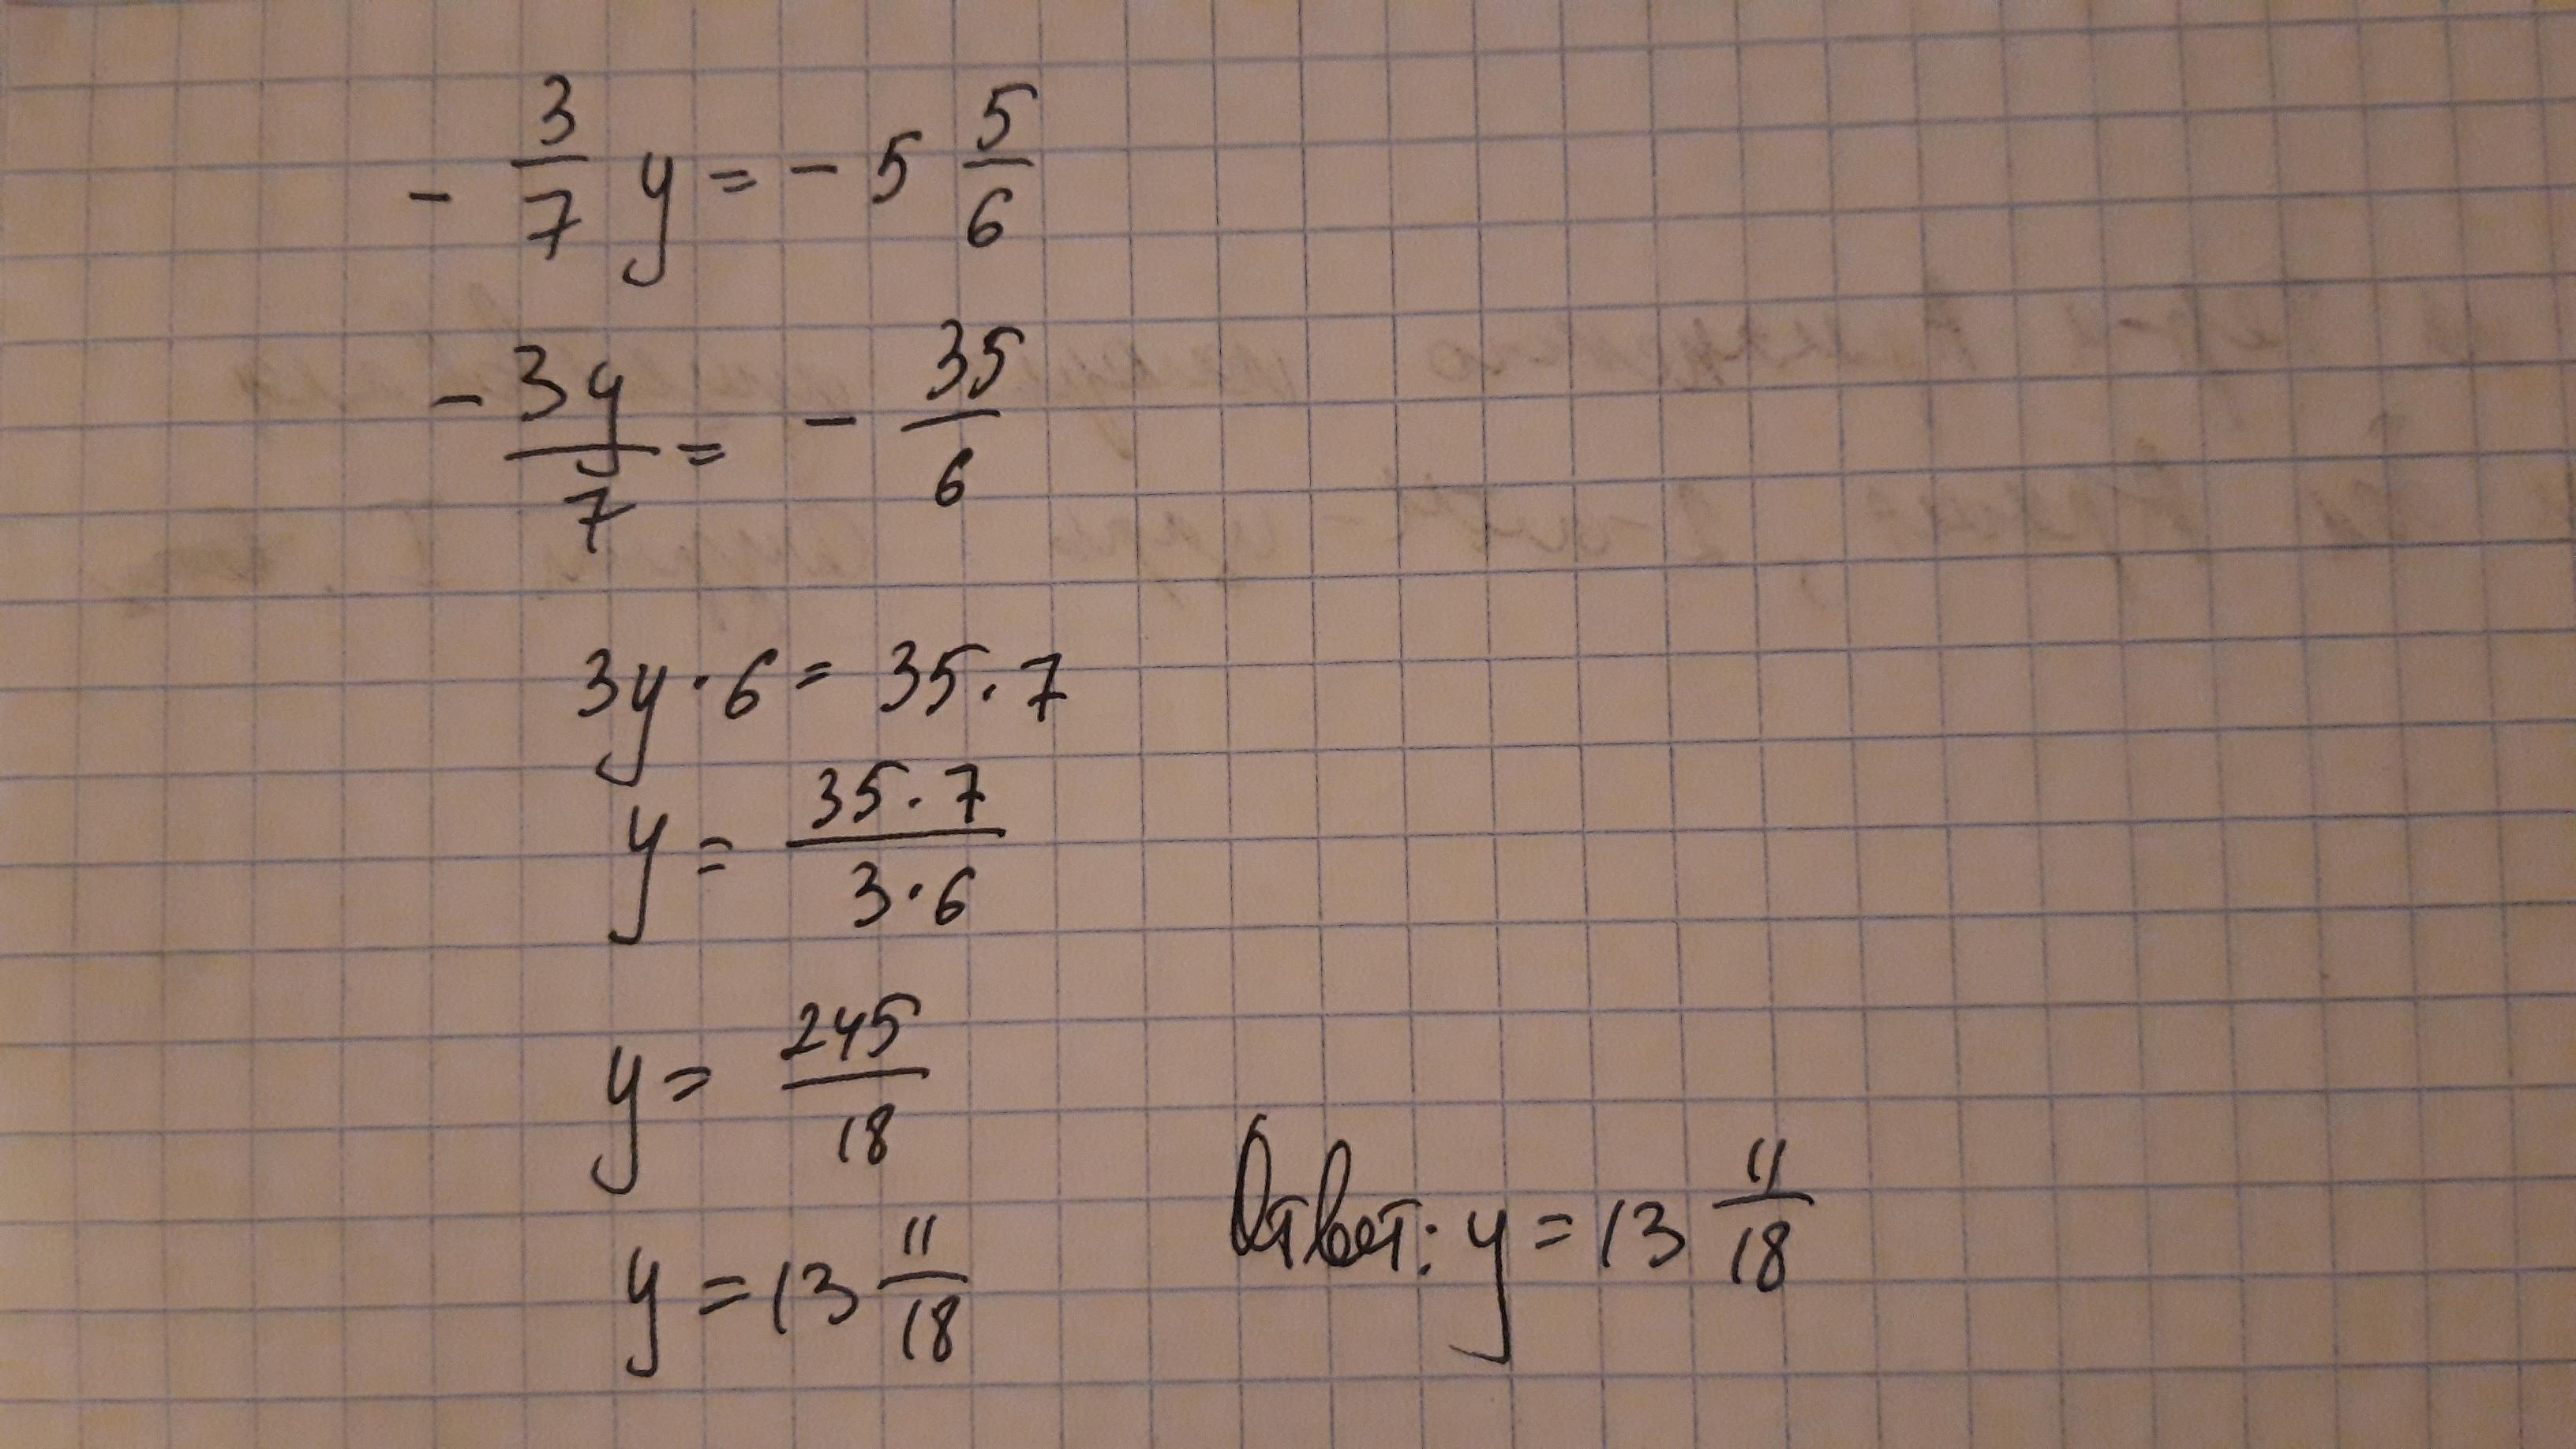 - 3/7 y = - 5 5/6
- 3y/7 = - 35/6
3y · 6 = 35 · 7
y = 35 · 7 / 3 · 6
y = 245/18
y = 13 11/18
Ответ: y = 13 11/18